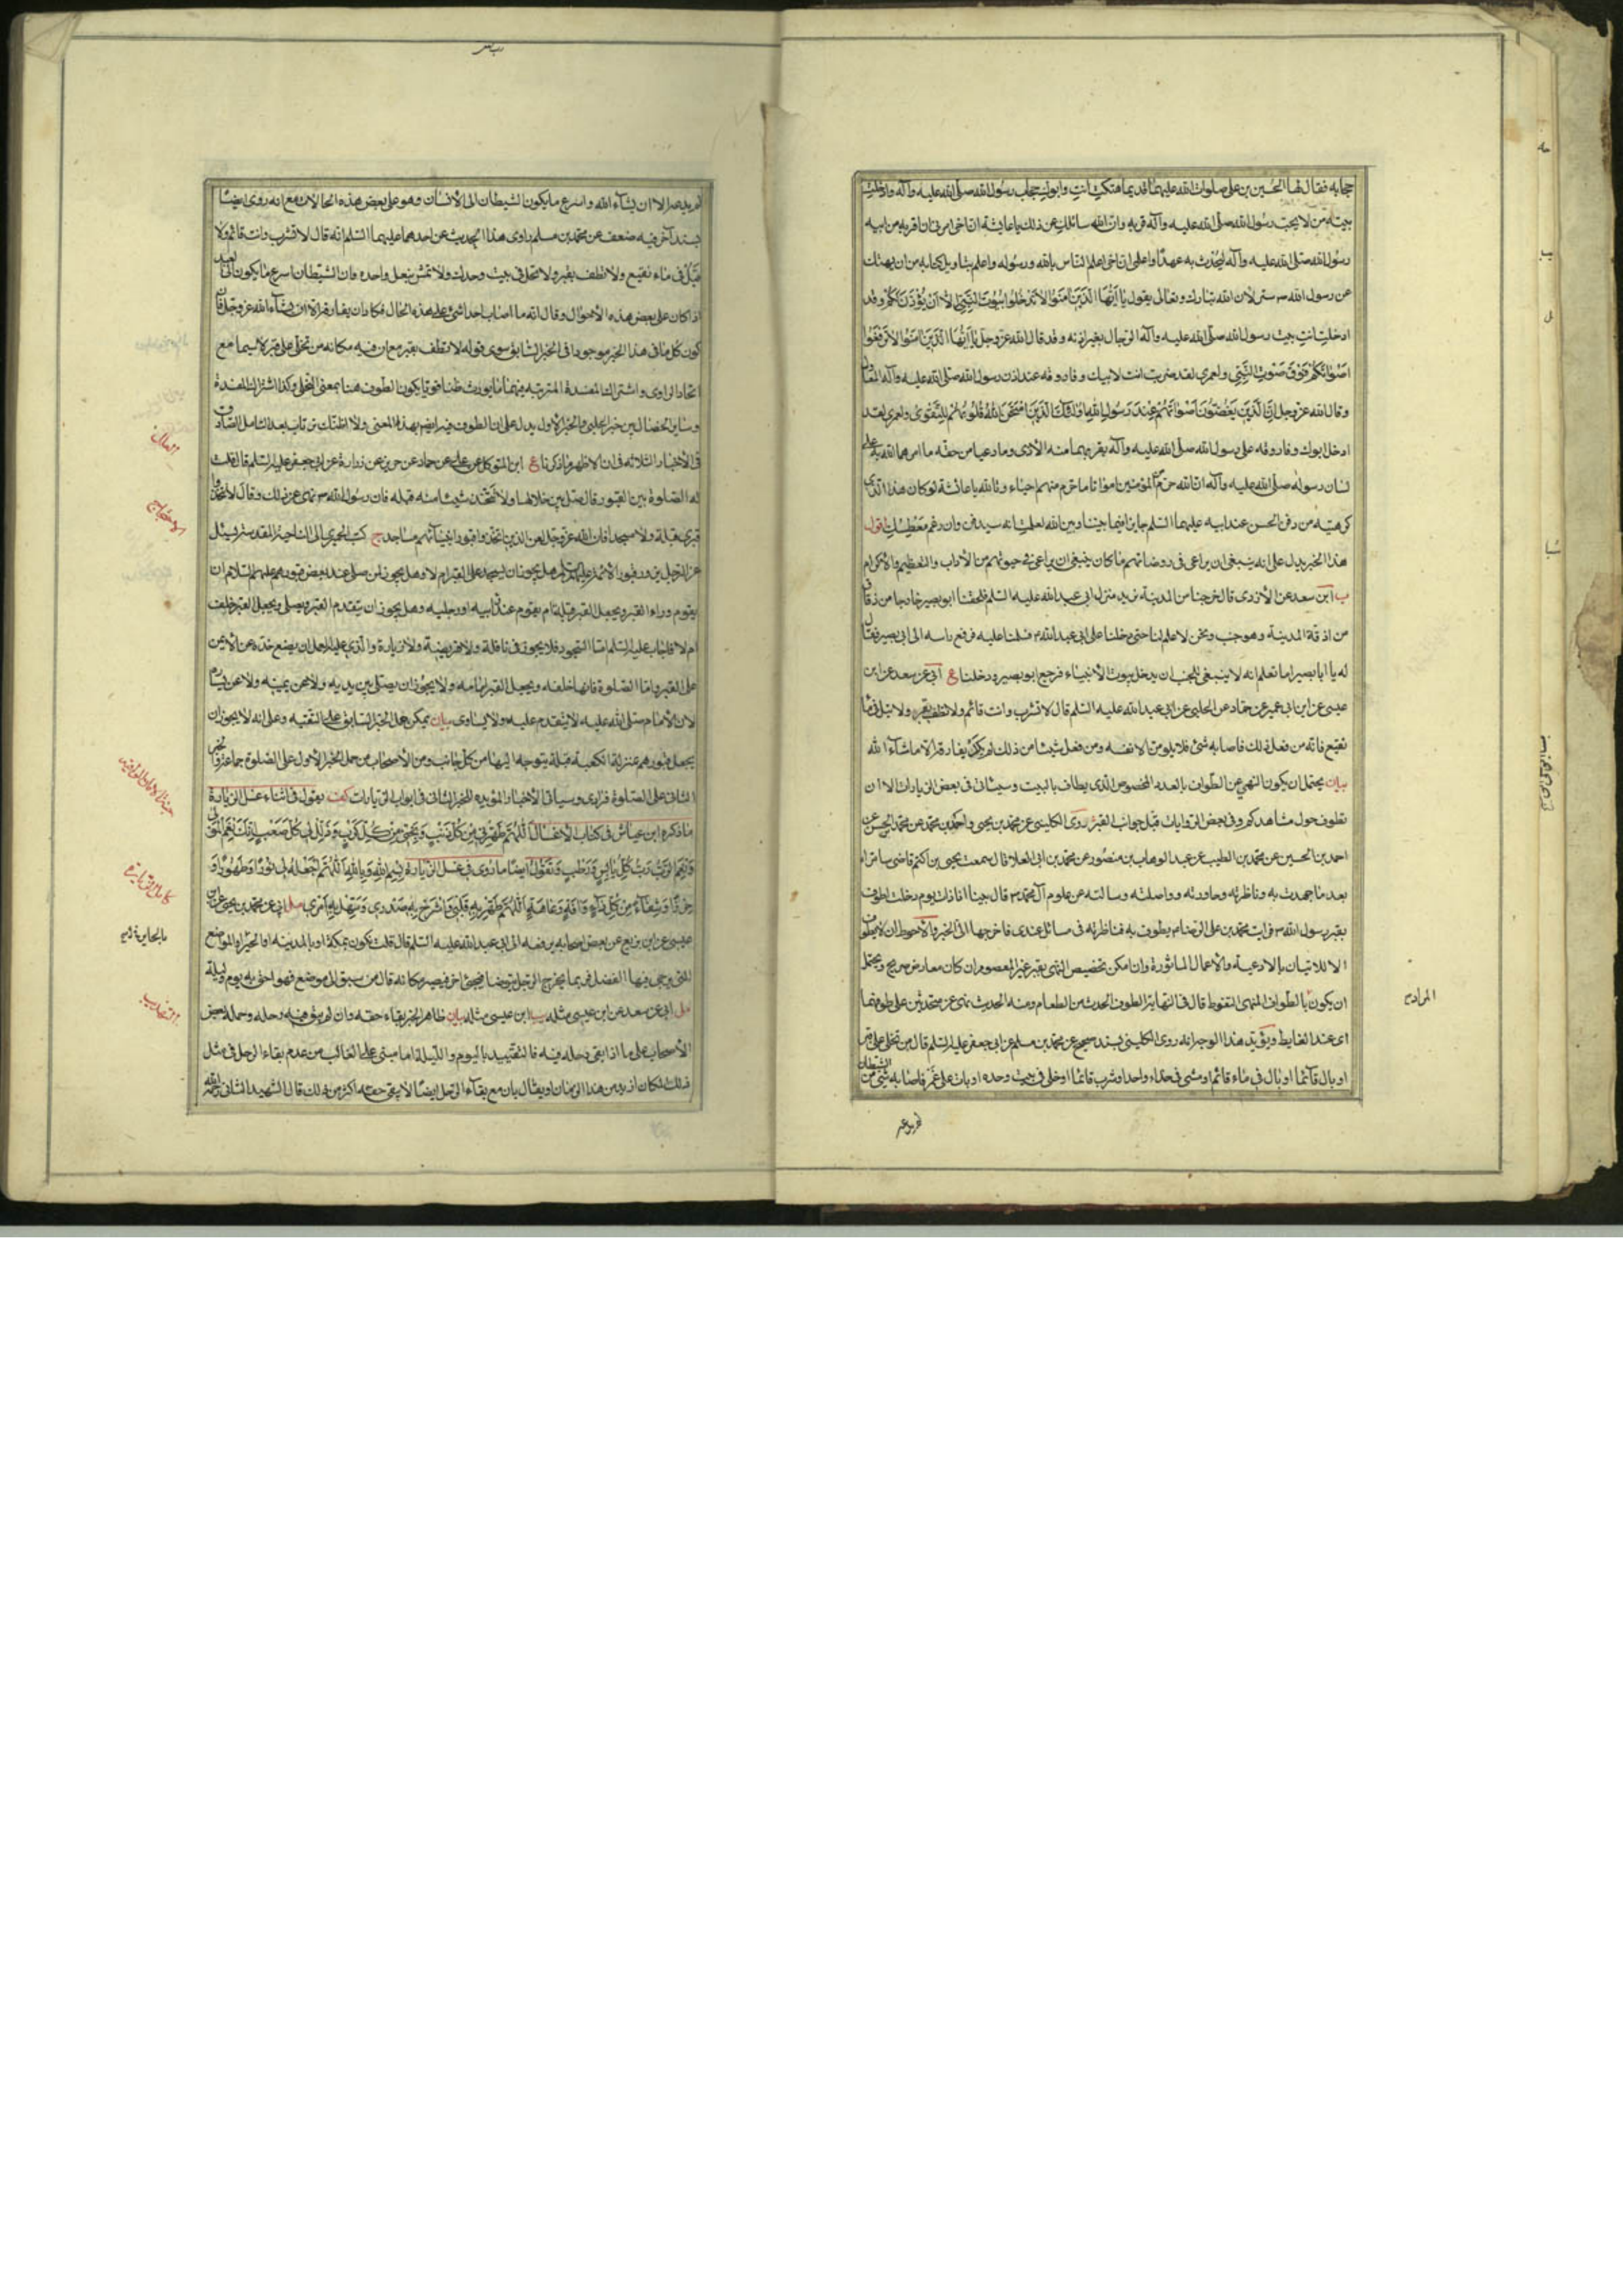 حجابه فقال لها الحسين بن علي صلوات الله عليهما قديما هتكت انت وابوك حجاب رسول الله صلى الله عليه وآله وادخلت
بيته من لا يحب رسول الله صلى الله عليه وآله قربه وان الله سائلك عن ذلك يا عايشة ان اخي امرني ان اقربه من ابيه
رسول الله صلى الله عليه وآله ليحدث به عهدا واعلمي ان اخي اعلم الناس بالله ورسوله واعلم بتاويل كتابه من ان يهتك
عن رسول الله ستره لان الله تبارك وتعالى يقول يا ايها الذين آمنوا لا تدخلوا بيوت النبي الا ان يؤذن لكم وقد
ادخلت انت بيت رسول الله صلى الله عليه وآله الرجال بغير اذنه وقد قال الله عز وجل يا ايها الذين آمنوا لا ترفعوا
اصواتكم فوق صوت النبي ولعمري لقد ضربت انت لابيك وفاروقه عند اذن رسول الله صلى الله عليه وآله المعاول
وقال الله عز وجل ان الذين يغضون اصواتهم عند رسول الله اولئك الذين امتحن الله قلوبهم للتقوى ولعمري لقد
ادخل ابوك وفاروقه على رسول الله صلى الله عليه وآله بقربهما منه الاذى وما رعيا من حقه ما امرهما الله به على
لسان رسوله صلى الله عليه وآله ان الله حرم من المؤمنين امواتا ما حرم منهم احياء وتالله يا عائشة لو كان هذا الذي
كرهتيه من دفن الحسن عند ابيه عليهما السلم جايزا فيما بيننا وبين الله لعلمت انه سيدفن وان رغم معطسك اقول
هذا الخبر يدل على انه ينبغي ان يراعى في روضاتهم ما كان ينبغي ان يراعى في حيوتهم من الآداب والتعظيم والاكرام
ب ابن سعد عن الازدي قال خرجنا من المدينة نريد منزل ابي عبد الله عليه السلم فلحقنا ابو بصير خارجا من زقاق
من ازقة المدينة وهو جنب ونحن لا علم لنا حتى دخلنا على ابي عبد الله فسلمنا عليه فرفع راسه الى ابي بصير فقال
له يا ابا بصير اما تعلم انه لا ينبغي للجنب ان يدخل بيوت الانبياء فرجع ابو بصير ودخلنا ع ابي عن سعد عن ابن
عيسى عن ابن ابي عمير عن حماد عن الحلبي عن ابي عبد الله عليه السلم قال لا تشرب وانت قائم ولا تطف بقبر ولا تبل في ماء
نقيع فانه من فعل ذلك فاصابه شئ فلا يلومن الا نفسه ومن فعل شيئا من ذلك لم يكن يفارقه الا ما شاء الله
بيان يحتمل ان يكون النهي عن الطواف بالعدد المخصوص الذي يطاف بالبيت وسيأتي في بعض الزيارات الا ان
نطوف حول مشاهدكم وفي بعض الروايات قبل جوانب القبر روى الكليني عن محمد بن يحيى واحمد بن محمد عن محمد بن الحسن عن
احمد بن الحسين عن محمد بن الطيب عن عبد الوهاب بن منصور عن محمد بن ابي العلا قال سمعت يحيى بن اكثم قاضي سامراء
بعد ما جهدت به وناظرته وحاورته وواصلته وسالته عن علوم آل محمد قال بينا انا ذات يوم دخلت اطوف
بقبر رسول الله فرايت محمد بن علي الرضا يطوف به فناظرته في مسائل عندي فاخرجها الى الخبر والاحوط ان لا يطوف
الا للاتيان بالادعية والاعمال الماثورة وان امكن تخصيص النهي بقبر غير المعصوم ان كان معارض صريح ويحتمل
ان يكون بالطواف المنهي التغوط قال في النهاية الطوف الحدث من الطعام ومنه الحديث نهى عن متحدثين على طوفهما
اى عند الغايط ويؤيد هذا الوجه انه روى الكليني بسند صحيح عن محمد بن مسلم عن ابي جعفر عليه السلم قال من تخلى على قبر
او بال قائما او بال في ماء قائم او مشى في حذاء واحد او شرب قائما او خلى في بيت وحده او بات على غمر فاصابه شئ من الشيطان
المراد
لم يدعه الا ان يشاء الله واسرع ما يكون الشيطان الى الانسان وهو على بعض هذه الحالات مع انه روى ايضا
بسند آخر فيه ضعف عن محمد بن مسلم راوي هذا الحديث عن احدهما عليهما السلم انه قال لا تشرب وانت قائم ولا
تبل في ماء نقيع ولا تطف بقبر ولا تخل في بيت وحدك ولا تمش بنعل واحدة وان الشيطان اسرع ما يكون الى العبد
اذا كان على بعض هذه الاحوال وقال انه ما اصاب احدا شئ على هذه الحال فكاد ان يفارقه الا ان يشاء الله عز وجل فان
كون كل ما في هذا الخبر موجودا في الخبر السابق سوى قوله لا تطف بقبر مع ان فيه مكانه من تخلى على قبر لا سيما مع
اتحاد الراوي واشتراك المفسدة المترتبة فيهما مما يورث ظنا قويا بكون الطوف هنا بمعنى التخلي وكذا اشتراك المفسدة
وساير الخصال بين خبر الحلبي والخبر الاول يدل على ان الطوف فيه ايضا بهذا المعنى ولا اظنك ترتاب بعد التامل الصادق
في الاخبار الثلاثة في ان الاظهر ما ذكرنا ع ابن المتوكل عن علي عن حماد عن حريز عن زرارة عن ابي جعفر عليه السلم قال قلت
له الصلوة بين القبور قال صل بين خلالها ولا تتخذ شيئا منه قبلة فان رسول الله نهى عن ذلك وقال لا تتخذوا
قبري قبلة ولا مسجدا فان الله عز وجل لعن الذين اتخذوا قبور انبيائهم مساجد ج كتب الحميري الى الناحية المقدسة يسئل
عن الرجل يزور قبور الائمة عليهم السلم هل يجوز ان يسجد على القبر ام لا وهل يجوز لمن صلى عند بعض قبورهم عليهم السلام ان
يقوم وراء القبر ويجعل القبر قبلة ام يقوم عند راسه او رجليه وهل يجوز ان يتقدم القبر ويصلي ويجعل القبر خلفه
ام لا فاجاب عليه السلم اما السجود فلا يجوز في نافلة ولا فريضة ولا زيارة والذي عليه العمل ان يضع خده الايمن
على القبر واما الصلوة فانها خلفه ويجعل القبر امامه ولا يجوز ان يصلي بين يديه ولا عن يمينه ولا عن يساره
لان الامام صلى الله عليه لا يتقدم عليه ولا يساوى بيان يمكن حمل الخبر السابق على التقية وعلى انه لا يجوز ان
يجعل قبورهم بمنزلة الكعبة قبلة يتوجه اليها من كل جانب ومن الاصحاب من حمل الخبر الاول على الصلوة جماعة والخبر
الثاني على الصلوة فرادى وسياتي الاخبار المؤيدة للخبر الثاني في ابواب الزيارات كف يقول في اثناء غسل الزيارة
ما ذكره ابن عياش في كتاب الاغسال اللهم طهرني من كل ذنب ونجني من كل كرب وذلل لي كل صعب انك نعم المولى
ونعم الرب رب كل يابس ورطب وتقول ايضا ما روى في غسل الزيارة بسم الله وبالله اللهم اجعله لي نورا وطهورا و
حرزا وشفاء من كل داء وآفة وعاهة اللهم طهر به قلبي واشرح به صدري وسهل به امري مل ابي عن محمد بن يحيى عن ابن
عيسى عن ابن بزيع عن بعض اصحابه يرفعه الى ابي عبد الله عليه السلم قال قلت نكون بمكة او بالمدينة او الحير او المواضع
التي يرجى فيها الفضل فربما يخرج الرجل يتوضا فيجئ آخر فيصير مكانه قال من سبق الى موضع فهو احق به يوم وليلة
مل ابي عن سعد عن ابن عيسى مثله يب ابن عيسى مثله بيان ظاهر الخبر بقاء حقه وان لم يبق فيه رحله وحمله بعض
الاصحاب على ما اذا بقي رحله فيه فالتقييد باليوم والليلة اما مبنى على الغالب من عدم بقاء الرحل في مثل
ذلك المكان ازيد من هذا الزمان او يقال بان مع بقاء الرحل ايضا لا يبقى حقه اكثر من ذلك قال الشهيد الثاني رحمه الله
العلل
الاحتجاج
كامل الزيارة
التهذيب